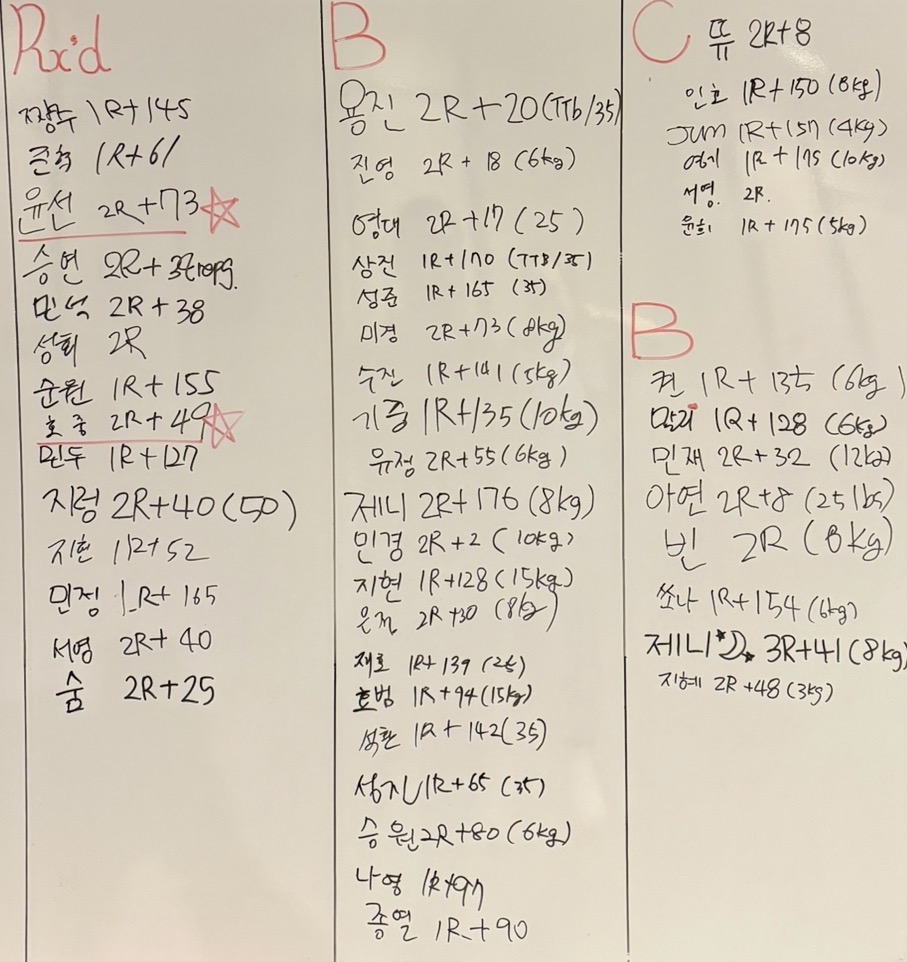 Rx'd
짱수 1R+145
준혁 1R+61
윤선 2R+73
승연 2R+3
민석 2R+38
성회 2R
순원 1R+155
호중 2R+49
민두 1R+127
지정 2R+40(50)
지환 1R+52
민정 1R+165
서영 2R+40
숨 2R+25
B
용진 2R+20(TTb/35)
진영 2R+18(6kg)
영대 2R+17(25)
상진 1R+170(TTB/35)
성준 1R+165(35)
미경 2R+73(8kg)
수진 1R+141(5kg)
기중 1R+135(10kg)
유정 2R+55(6kg)
제니 2R+176(8kg)
민경 2R+2(10kg)
지현 1R+128(15kg)
은정 2R+30(8kg)
재호 1R+139(25)
호범 1R+94(15kg)
석환 1R+142(35)
성진 1R+65(35)
승원 2R+80(6kg)
나영 1R+97
종열 1R+90
C
뜌 2R+8
인호 1R+150(8kg)
Jum 1R+157(4kg)
여기 1R+175(10kg)
서영. 2R.
윤희 1R+175(5kg)
B
켠 1R+135(6kg)
1R+128(6kg)
민재 2R+32(12kg)
아연 2R+8(25lbs)
빈 2R(8kg)
쏘나 1R+154(6kg)
제니 3R+41(8kg)
지혜 2R+48(3kg)